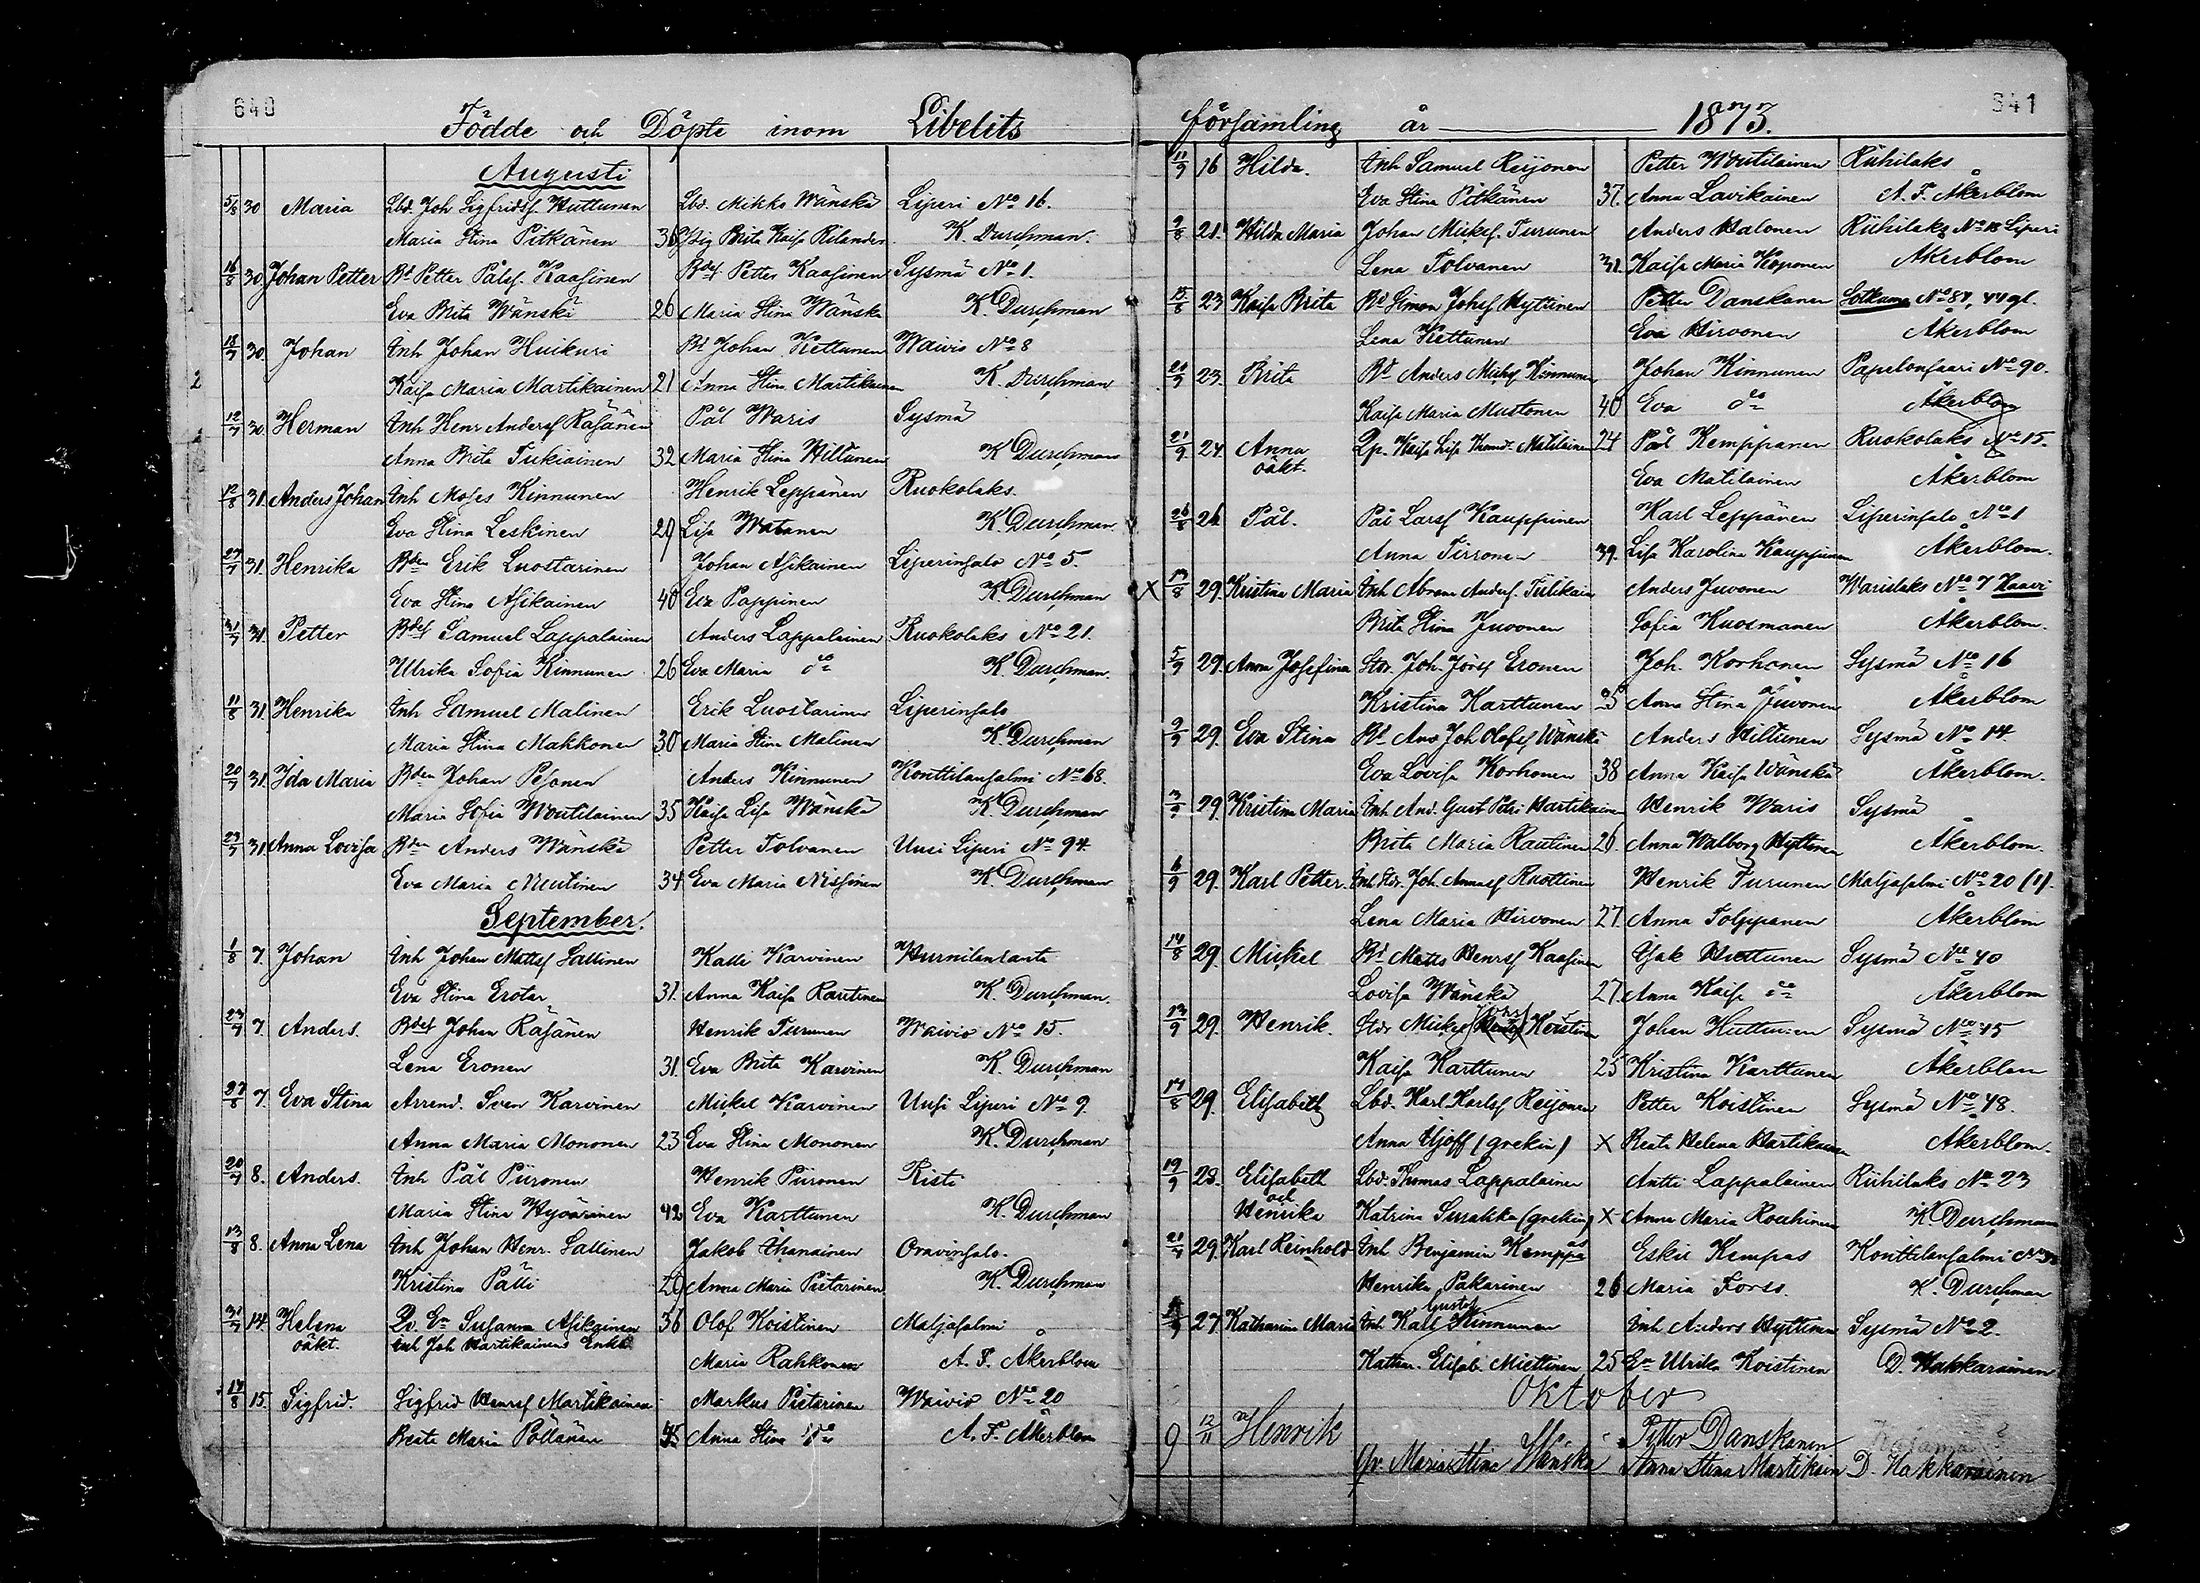 640
Födde och Döpte inom Libelits
Augusti
5/8 30 Maria Lbd. Joh Sigfridsf. Huttunen Lbd. Mikko Wänskä Liperi No 16.
Maria Stina Pitkänen 36 Pig Brita Kaisa Rilander K. Durchman.
16/8 30 Johan Petter Bd Petter Pålsf. Kaasinen Bdes Petter Kaasinen Sysmä No 1.
Eva Brita Wänskä 26 Maria Stina Wänskä K. Durchman
18/7 30. Johan Inh Johan Huikuri Bd Johan Kettunen Waivio No 8
2 Kaisa Maria Martikainen 21 Anna Stina Martikainen K. Durchman
12/7 30. Herman Inh Henr Andersf Räsänen Pål Waris Sysmä
Anna Brita Tukiainen 32 Maria Stina Hiltunen K Durchman
12/8 31. Anders Johan Inh Moses Kinnunen Henrik Leppänen Ruokolaks.
Eva Stina Leskinen 29 Lisa Watanen K. Durchman.
27/7 31. Henrika Bden Erik Luostarinen Johan Asikainen Liperinsalo No 5.
Eva Stina Asikainen 40 Eva Pappinen K. Durchman
31/7 31. Petter Bdes Samuel Lappalainen Anders Lappalainen Ruokolaks No 21.
Ulrika Sofia Kinnunen 26 Eva Maria do K. Durchman.
11/8 31. Henrika Inh Samuel Malinen Erik Luostarinen Liperinsalo
Maria Stina Makkonen 30 Maria Stina Malinen K. Durchman
20/7 31. Ida Maria Bden Johan Pesonen Anders Kinnunen Konttilansalmi No 68.
Maria Sofia Woutilainen 35 Kaisa Lisa Wänskä K. Durchman
23/7 31. Anna Lovisa Bden Anders Wänskä Petter Tolvanen Uusi Liperi No 94
Eva Maria Mustinen 34 Eva Maria Nissinen K. Durchman
September.
1/8 7. Johan Inh Johan Mattsf Sallinen Kalle Karvinen Hurnilanranta
Eva Stina Erotar 31. Anna Kaisa Rautinen K. Durchman.
23/7 7. Anders. Bdes Johan Räsänen Henrik Turunen Waivio No 15.
Lena Eronen 31. Eva Brita Karvinen K. Durchman
27/8 7. Eva Stina Arrend. Sven Karvinen Mickel Karvinen Uusi Liperi No 9.
Anna Maria Mononen 23 Eva Stina Mononen K. Durchman
20/7 8. Anders. Inh Pål Piironen Henrik Piironen Risti
Maria Stina Hyvärinen 42 Eva Karttunen K. Durchman
13/8 8. Anna Lena Inh Johan Henr. Sallinen Jakob Ahanainen Oravinsalo.
Kristina Palli 29 Anna Maria Pietarinen K. Durchman
31/7 14. Helena Qv. Ea Susanna Asikainen 36 Olof Koistinen Maljasalmi
oäkt. Inh Joh Hartikainens Enka Maria Rahkonen A. F. Åkerblom
14/8 15. Sigfrid. Sigfrid Henrsf Martikainen Markus Pietarinen Waivio No 20
Beata Maria Pöllänen 45 Anna Stina do A. F. Åkerblom
341
församling år 1873.
11/9 16 Hilda. Inh Samuel Reijonen Petter Woutilainen Riihilaks
Eva Stina Pitkänen 37. Anna Lavikainen A. F. Åkerblom
9/8 21. Hilda Maria Johan Mickelf. Turunen Anders Halonen Riihilaks No 13 Liperi
Lena Tolvanen 31. Kaisa Maria Koponen Åkerblom
15/8 23 Kaisa Brita Bd Simon Johsf Hyttinen Petter Danskanen Sotkuma No 87, 44 gl.
Lena Kettunen Eva Hirvonen Åkerblom
20/9 23. Brita Bd Anders Michsf Kinnunen Johan Kinnunen Papelonsaari No 90.
Kaisa Maria Mustonen 40 Eva do Åkerblom
21/9 24. Anna Qp. Kaisa Lisa Thomd. Matilainen 24 Pål Kemppanen Ruokolaks No 15.
oäkt. Eva Matilainen Åkerblom
26/8 26 Pål. Pål Larsf Kauppinen Karl Leppänen Liperinsalo No 1
Anna Tirronen 39. Lisa Karolina Kauppinen Åkerblom.
X 17/8 29. Kristina Maria Inh Abram Andersf. Tiilikain Anders Juvonen Warislaks No 7 Kaavi
Brita Stina Juvonen Sofia Kuosmanen Åkerblom.
5/9 29. Anna Josefina Stor. Joh. Jörsf Eronen Joh. Korhonen Sysmä No 16
Kristina Karttunen 35 Anna Stina Juvonen Åkerblom
9/9 29. Eva Stina Bd Anv Joh Olofsf Wänskä Anders Hiltunen Sysmä No 14.
Eva Lovisa Korhonen 38 Anna Kaisa Wänskä Åkerblom.
3/9 29. Kristina Maria Inh And. Gust Petri Hartikainen Henrik Waris Sysmä
Brita Maria Rautinen 26. Anna Walborg Hyttinen Åkerblom.
6/9 29. Karl Petter. Inh Stor. Joh. Annasf Ruottinen Henrik Turunen Maljasalmi No 20 (1).
Lena Maria Hirvonen 27. Anna Tolppanen Åkerblom
14/8 29. Mickel Bd Matts Henrsf Kaasinen Isak Huttunen Sysmä No 40
Lovisa Wänskä 27. Anna Kaisa do Åkerblom
13/9 29. Henrik. Stor Mickel Koistinen Johan Huttunen Sysmä No 45
Kaisa Karttunen 25 Kristina Karttunen Åkerblom
17/8 29. Elisabeth Lbd. Karl Karlsf Reijonen Petter Koistinen Sysmä No 48.
Anna Ujoff (grekin) X Beata Helena Hartikainen Åkerblom.
19/9 28. Elisabeth Lbd. Thomas Lappalainen Antti Lappalainen Riihilaks No 23
och Henrika Katrina Surakka (grekin) X Anna Maria Rouhinen K. Durchman
21/7 29. Karl Reinhold Inh Benjamin Kemppas Eskil Kempas Konttilansalmi No 38
Henrika Pakarinen 26 Maria Forss. K. Durchman
27. Katharina Maria Inh Karl Gustaf Kinnunen Inh Anders Hyttinen Sysmä No 2.
Kathar. Elisab. Miettinen 25 Ea Ulrika Koistinen D. Hakkarainen
Oktober
9 12/11 Henrik Petter Danskanen
Qv. Maria Stina Wänskä Anna Stina Martikain D. Hakkarainen